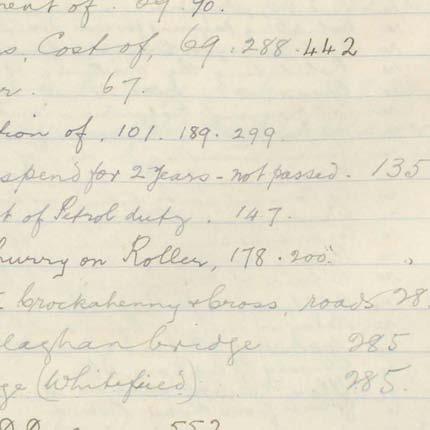 ment of . 69 . 90.
s, Cost of, 69 . 288 . 442
r . 67.
tion of . 101 . 189 . 299
spend for 2 years - not passed . 135
t of Petrol duty . 147.
hurry on Roller, 178 . 200.
Crockahenny & Cross, roads 28
laghan bridge 285
ge (Whitefield) 285.
552